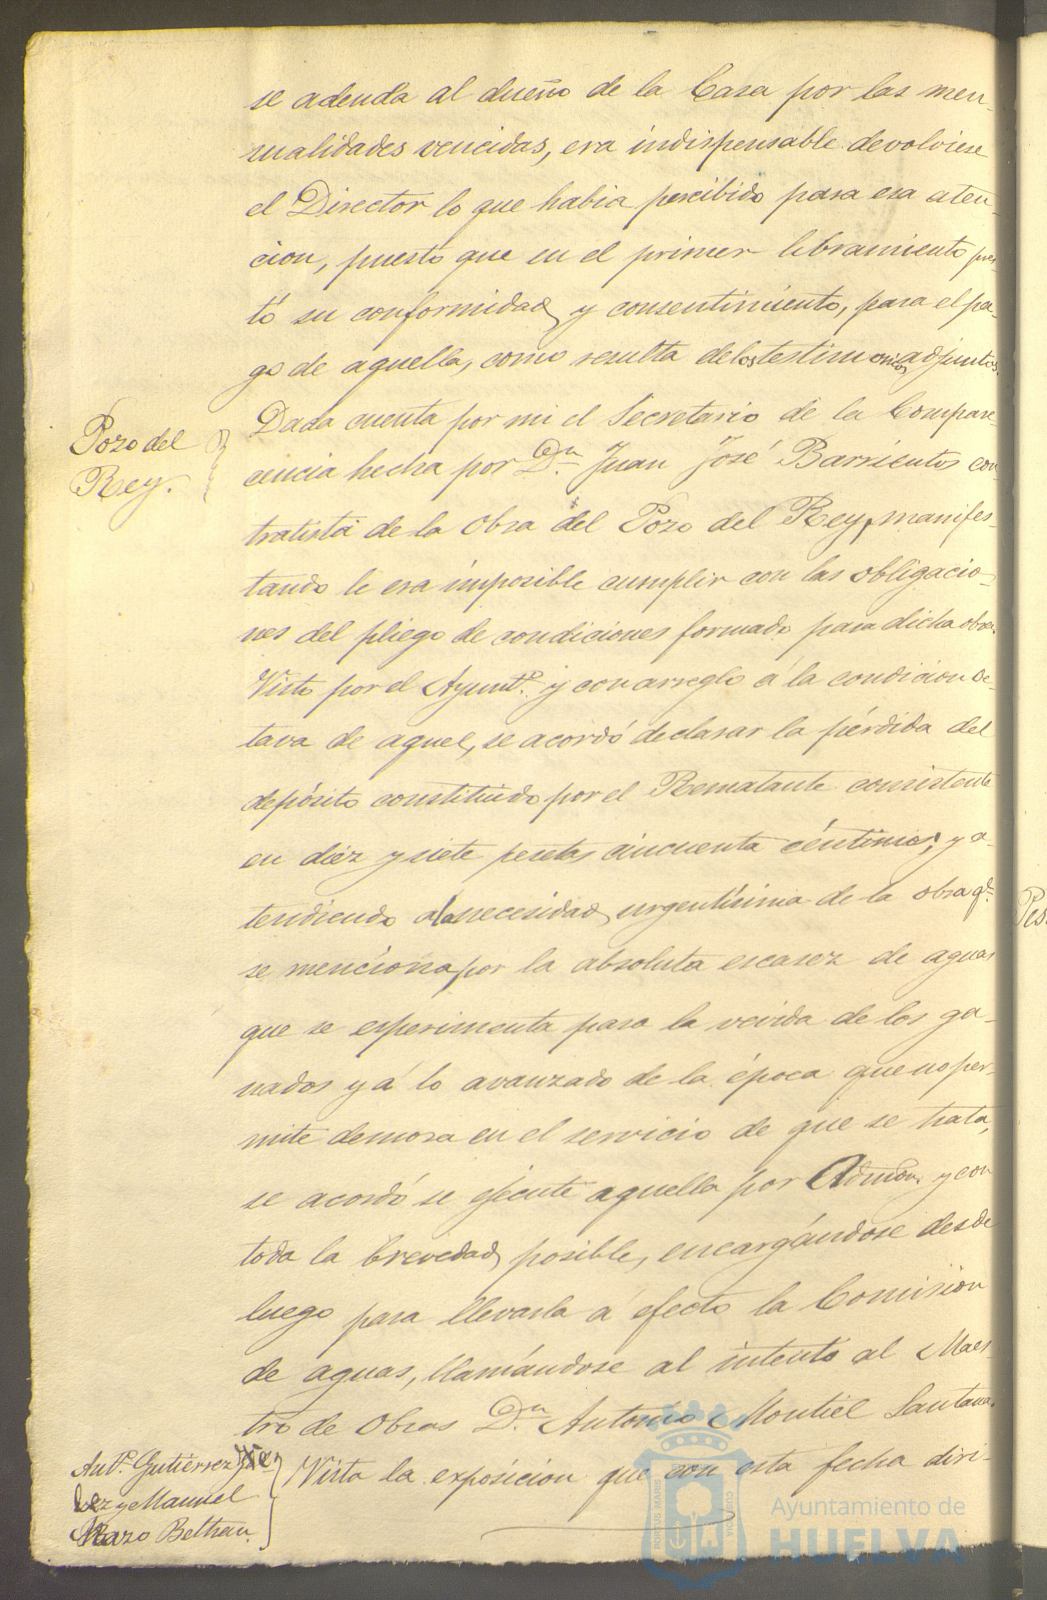 se adeuda al dueño de la Casa por las men-
sualidades vencidas, era indispensable devolviese
el Director lo que habia percibido para esa aten-
cion, puesto que en el primer libramiento pres-
tó su conformidad y consentimiento, para el pa-
go de aquella, como resulta de los testimonios adjuntos.
Pozo del
Rey.
Dada cuenta por mi el Secretario de la Compare-
cencia hecha por Dn. Juan José Barrientos con-
tratista de la obra del Pozo del Rey, manifes-
tando le era imposible cumplir con las obligacio-
nes del pliego de condiciones formado para dicha obra.
Visto por el Ayuntº. y con arreglo á la condicion oc-
tava de aquel, se acordó declarar la pérdida del
depósito constituido por el Rematante consistente
en diez y siete pesetas cincuenta céntimos; y a-
tendiendo a la necesidad urgentísima de la obra qe.
se menciona por la absoluta escasez de aguas
que se experimenta para la vevida de los ga-
nados y á lo avanzado de la época que no per-
mite demora en el servicio de que se trata,
se acordó se ejecute aquella por Admon. y con
toda la brevedad posible, encargándose desde
luego para llevarla á efecto la Comision
de aguas, llamándose al intento al Maes-
tro de Obras Dn. Antonio Montiel Santana.
Antº. Gutiérrez
y Manuel
Beltran.
Vista la exposicion que con esta fecha diri-
Ayuntamiento de
HUELVA